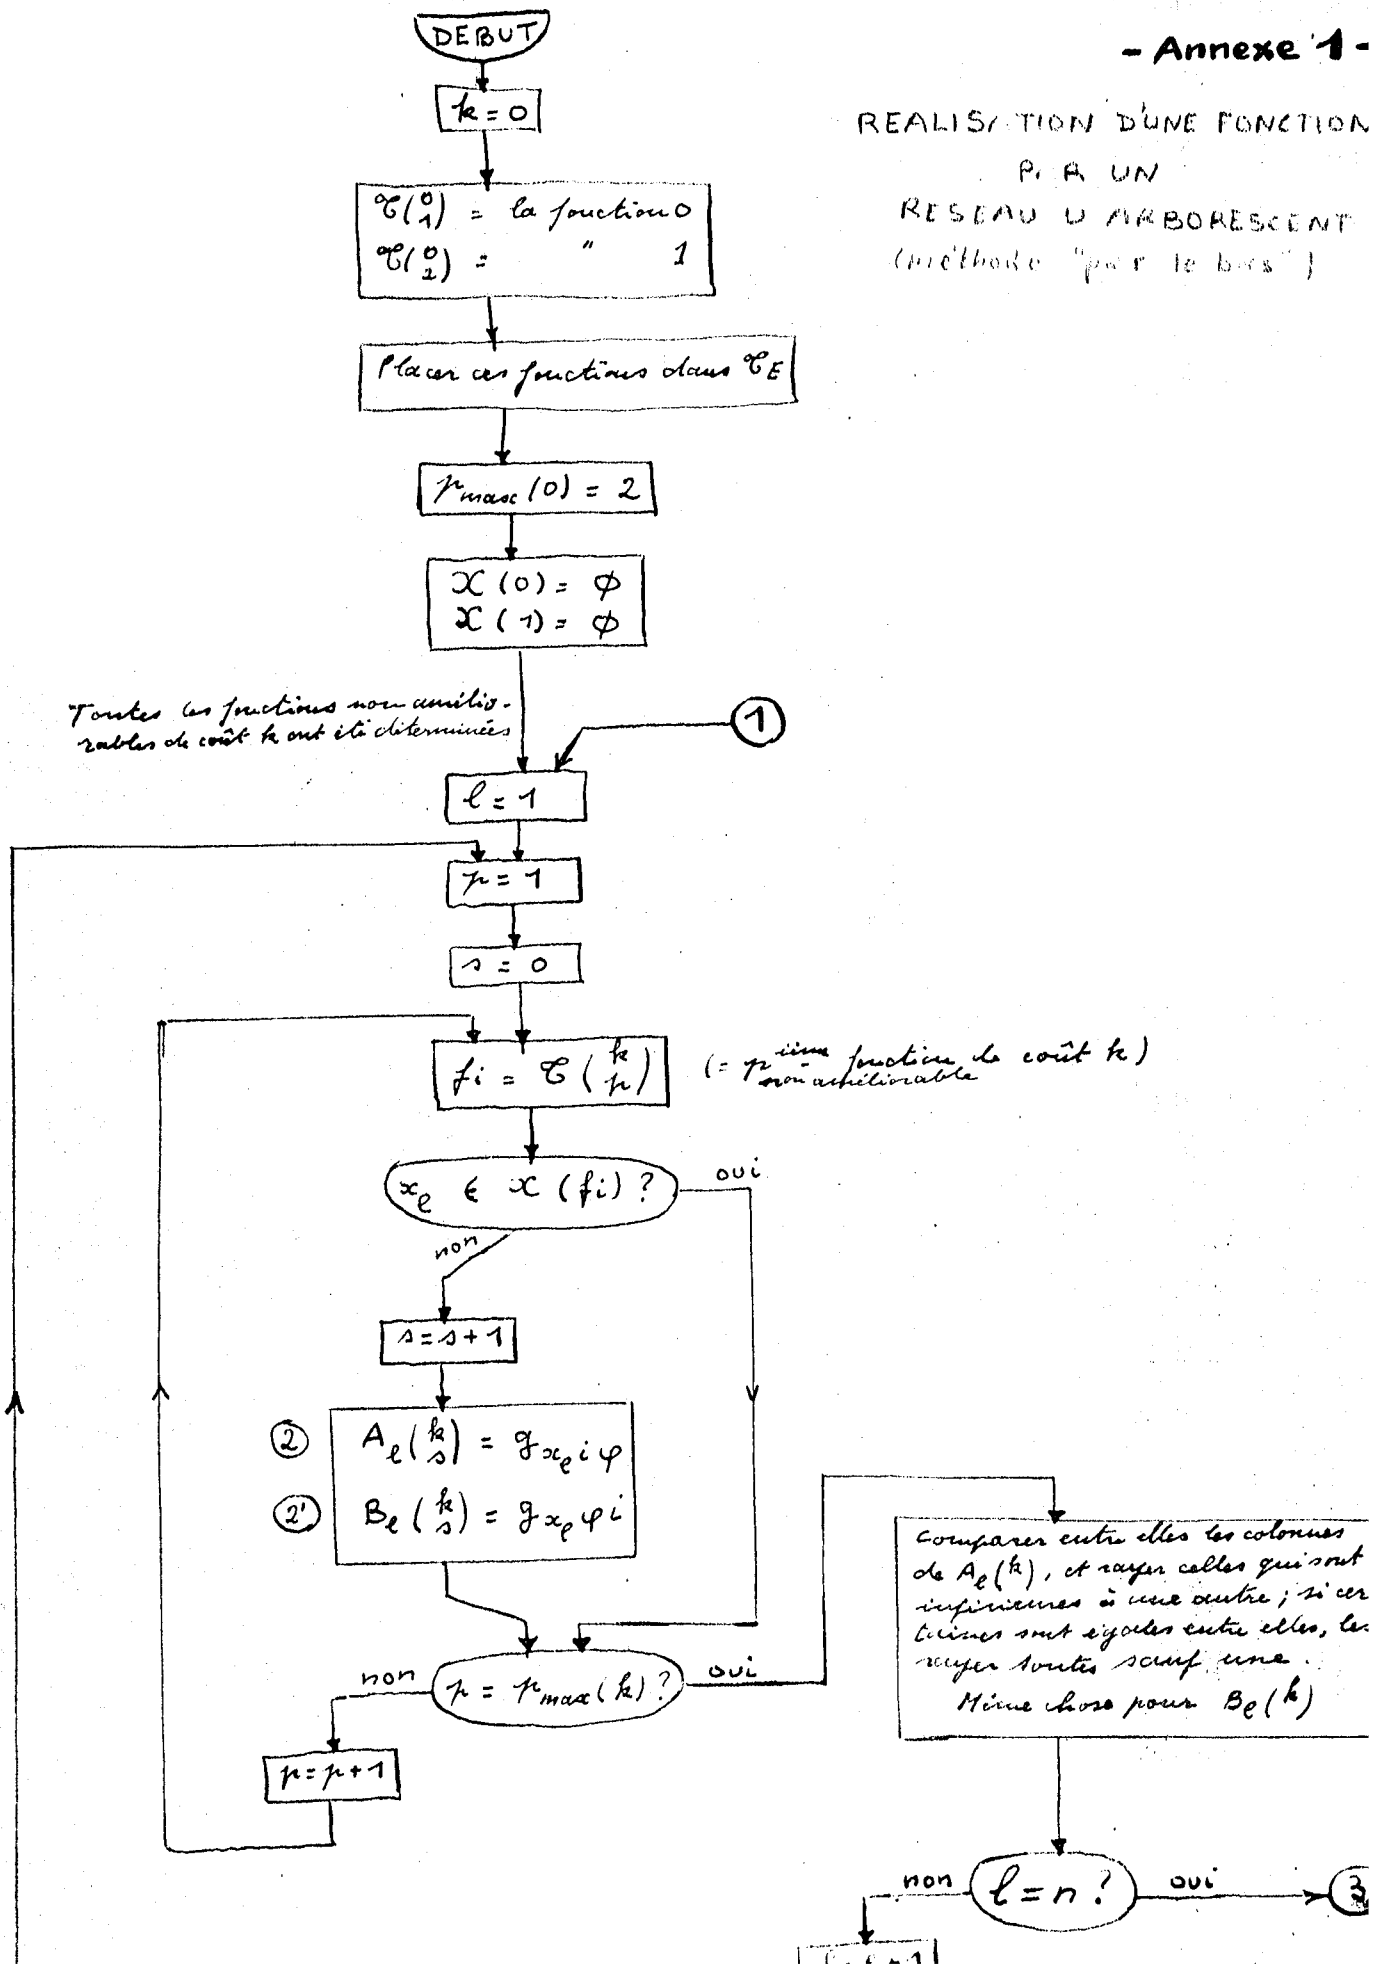 DEBUT
- Annexe 1 -
REALISATION D'UNE FONCTION
PAR UN
RESEAU U ARBORESCENT
(méthode "par le bas")
k = 0
𝒞(0 1) = la fonction 0
𝒞(0 2) = " 1
Placer ces fonctions dans 𝒞E
pmax(0) = 2
X(0) = φ
X(1) = φ
Toutes les fonctions non amélio-
rables de coût k ont été déterminées
1
l = 1
p = 1
s = 0
fi = 𝒞(k p)
(= pième fonction de coût k)
non améliorable
xl ∈ X(fi) ?
oui
non
s = s + 1
2 Al(k s) = gxl i φ
2' Bl(k s) = gxl φ i
Comparer entre elles les colonnes
de Al(k), et rayer celles qui sont
inférieures à une autre ; si cer
taines sont égales entre elles, les
rayer toutes sauf une.
Même chose pour Bl(k)
non
p = pmax(k) ?
oui
p = p + 1
non
l = n ?
oui
3